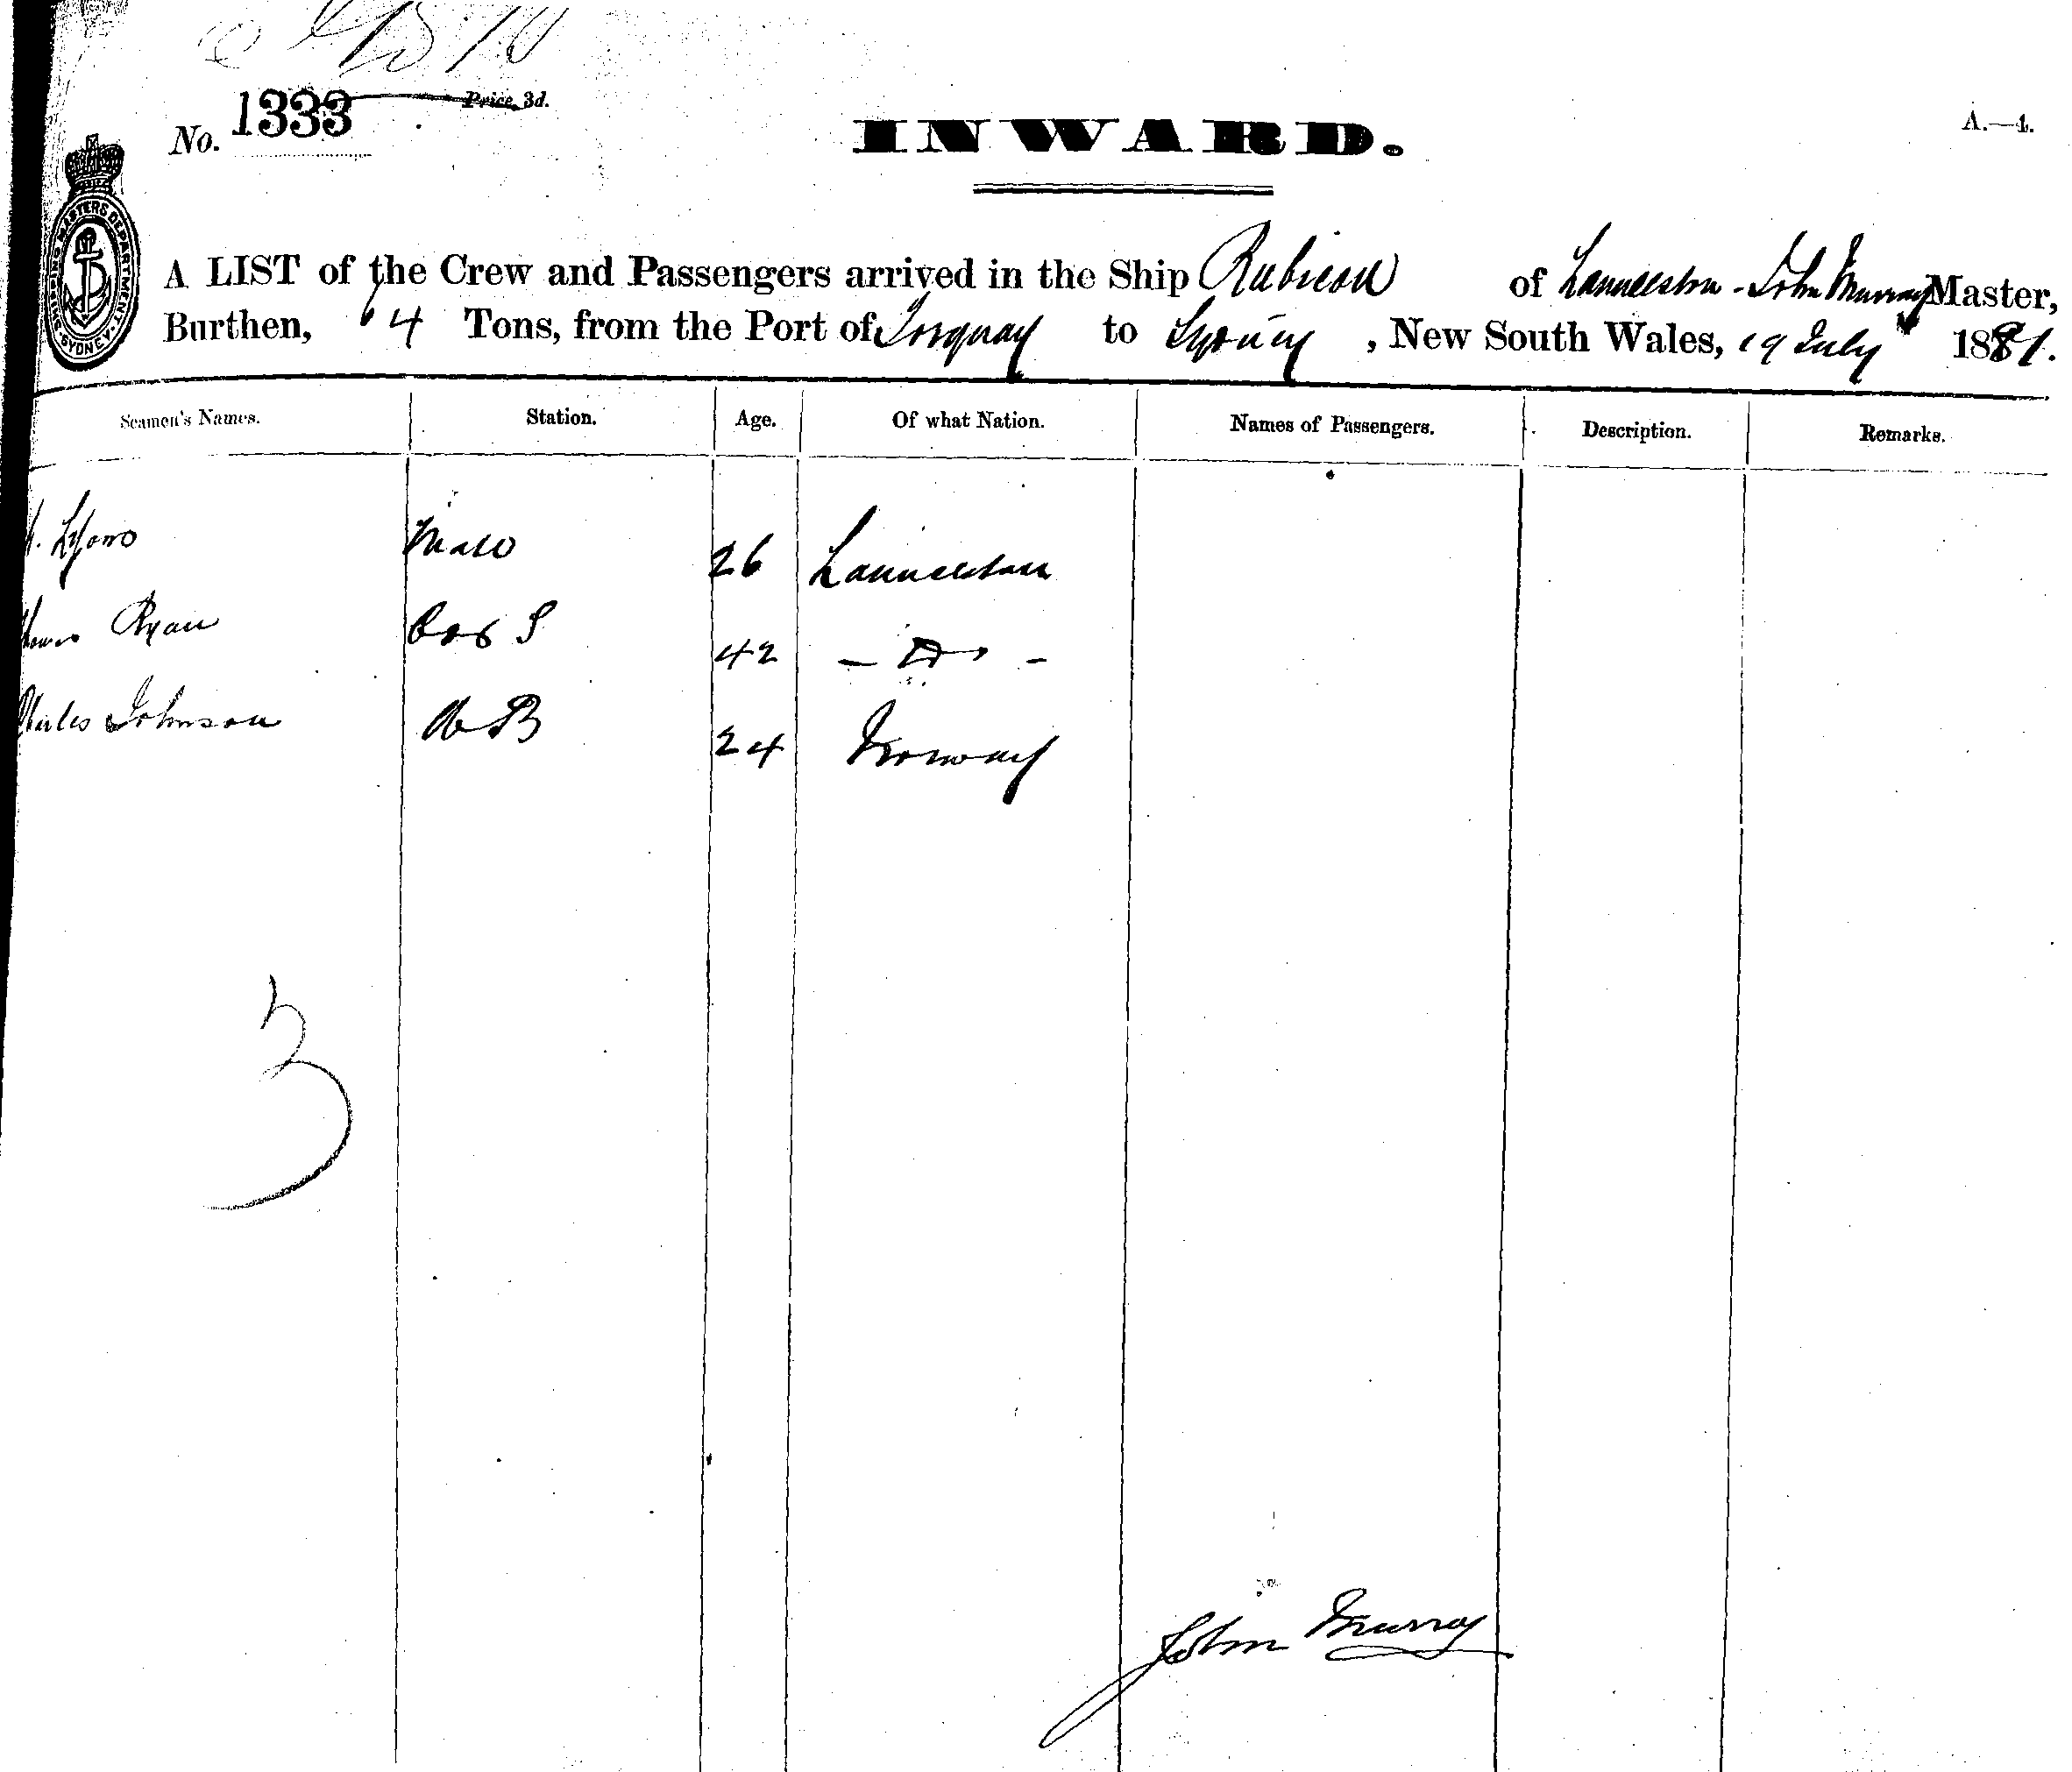 No. 1333 Price 3d.
INWARD.
A.—4.
SHIPPING MASTERS DEPARTMENT SYDNEY
A LIST of the Crew and Passengers arrived in the Ship Rubicon of Launceston - John Murray Master,
Burthen, 64 Tons, from the Port of Torquay to Sydney, New South Wales, 19 July 1881.
Seamen's Names. Station. Age. Of what Nation. Names of Passengers. Description. Remarks.
Lyons Mate 26 Launceston
Ryan 42 - Do -
Charles Johnson AB 24 Norway
3
John Murray